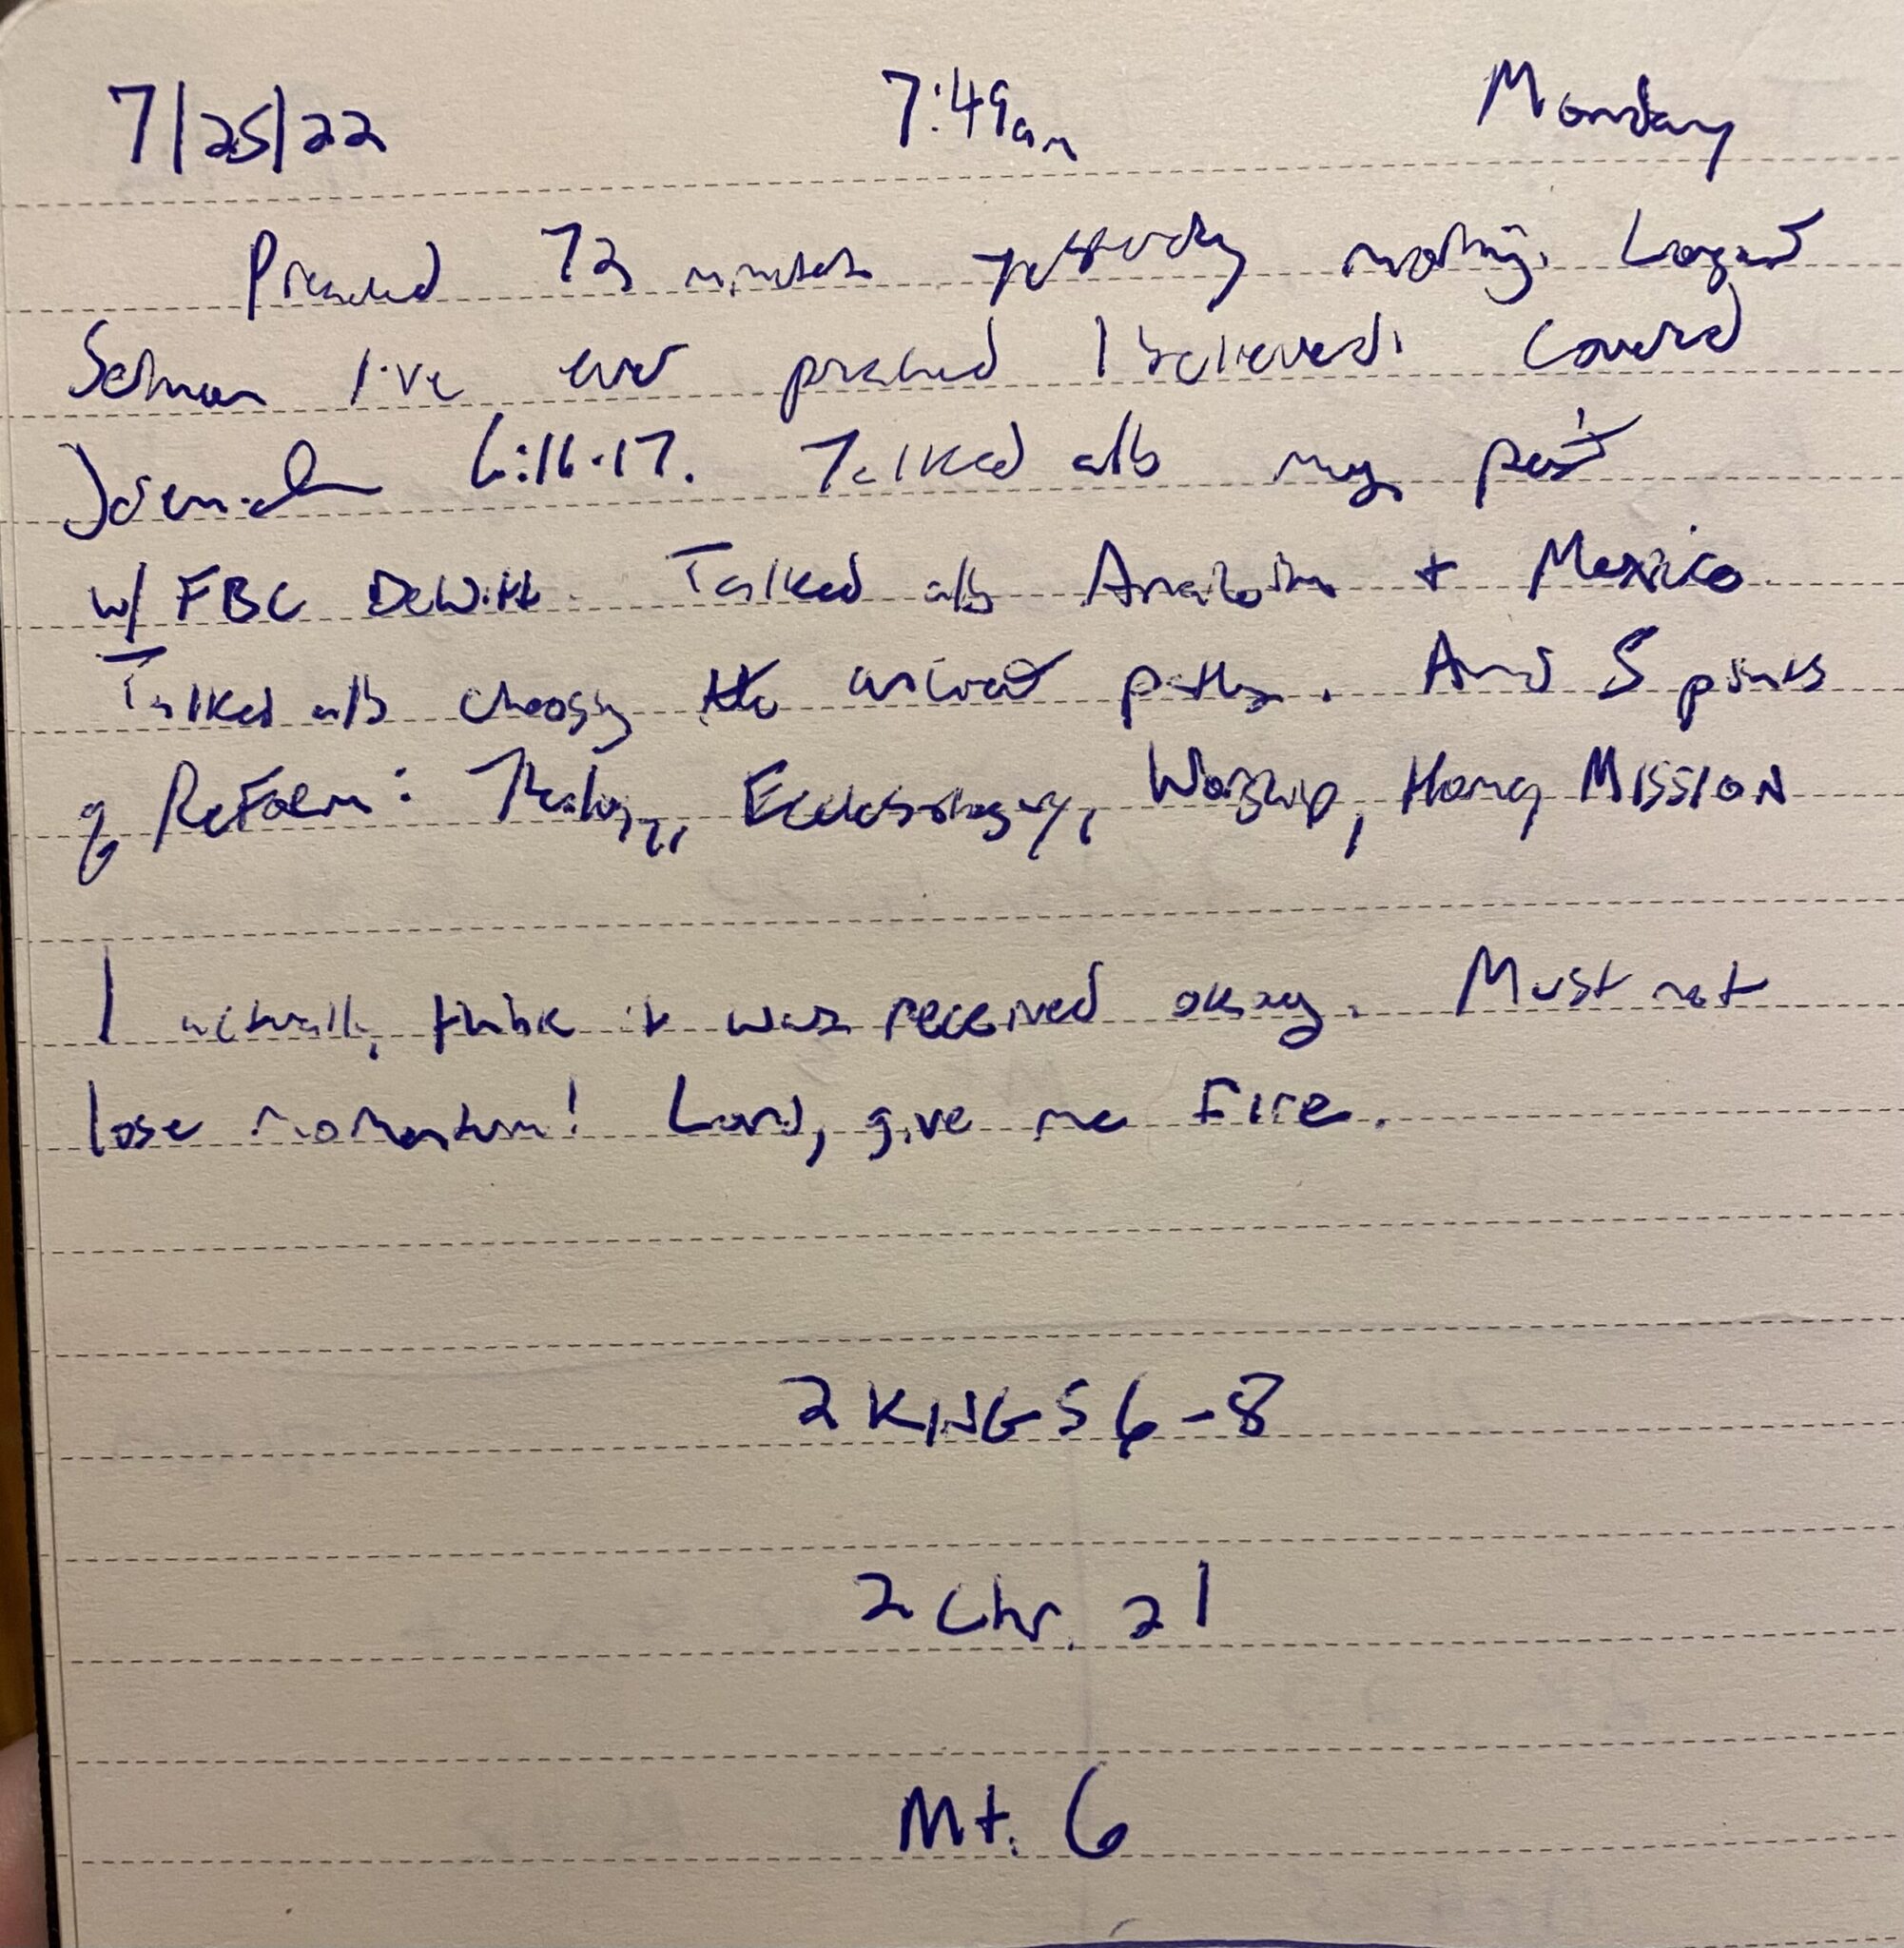 7/25/22 7:49am Monday
Preached 72 minutes yesterday morning. Longest
Sermon I've ever preached I believed. Covered
Jeremiah 6:16-17. Talked a/b my past
w/ FBC DeWitt. Talked a/b + Mexico
Talked a/b choosing the ancient paths. And 5 points
of Reform: Theology, Ecclesiology, Worship, Home, MISSION
I actually think it was received okay. Must not
lose momentum! Lord, give me Fire.
2 KINGS 6-8
2 Chr. 21
Mt. 6